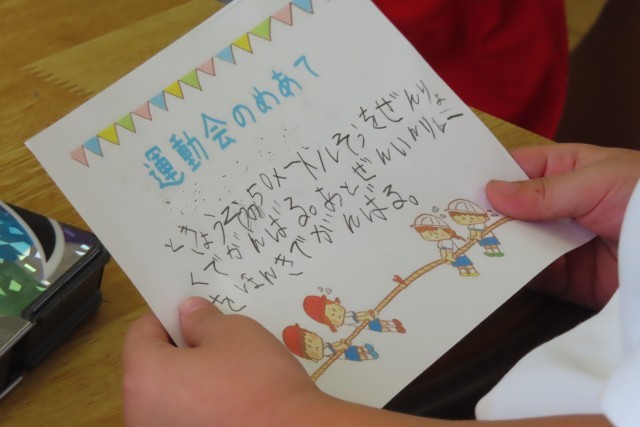 運動会のめあて
ときょうそう50メートルそうをぜんりょ
くでがんばる。あとぜんいんリレー
をほんきでがんばる。